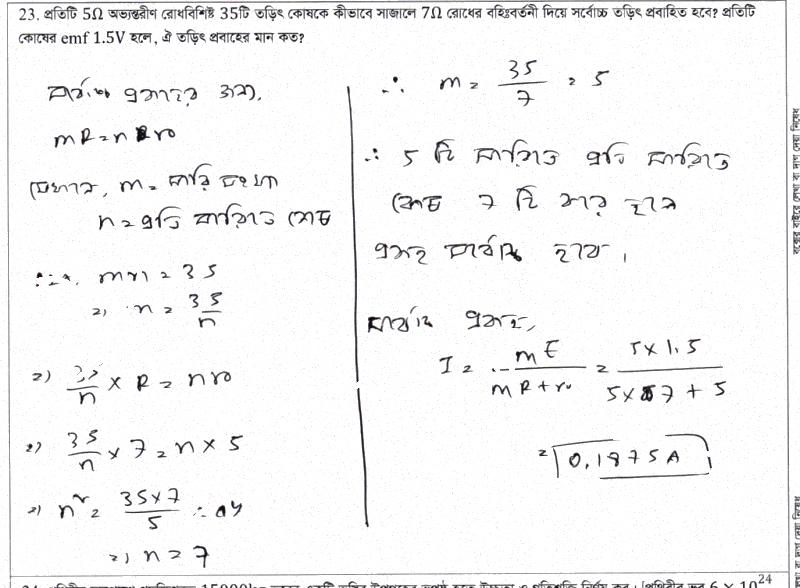 23. প্রতিটি 5Ω অভ্যন্তরীণ রোধবিশিষ্ট 35টি তড়িৎ কোষকে কীভাবে সাজালে 7Ω রোধের বহিঃবর্তনী দিয়ে সর্বোচ্চ তড়িৎ প্রবাহিত হবে? প্রতিটি
কোষের emf 1.5V হলে, ঐ তড়িৎ প্রবাহের মান কত?
সর্বোচ্চ প্রবাহের জন্য,
mR = nr
যেখানে, m = সারি সংখ্যা
n = প্রতি সারিতে কোষ
mn = 35
n = 35/n
⇒ 35/n × R = nr
⇒ 35/n × 7 = n × 5
⇒ n² = 35×7/5 = 49
⇒ n = 7
∴ m = 35/7 = 5
∴ 5 টি সারিতে প্রতি সারিতে
কোষ 7 টি করে হলে
প্রবাহ সর্বোচ্চ হবে।
সর্বোচ্চ প্রবাহ,
I = mE/mR+r = 5×1.5/5×7+5
= 0.1875A